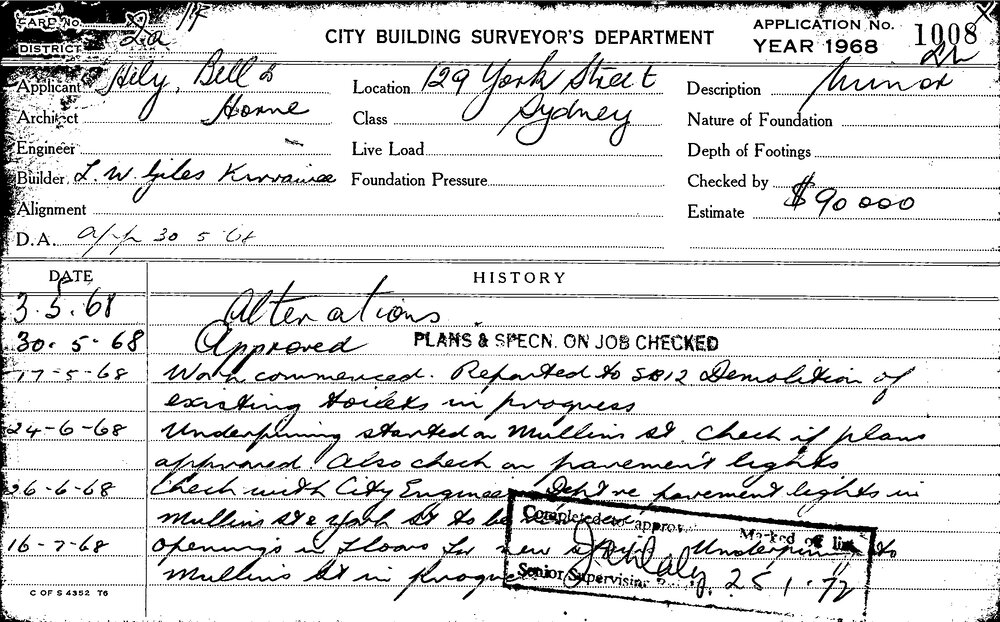 CARD No. 14
DISTRICT 2a
CITY BUILDING SURVEYOR'S DEPARTMENT
APPLICATION No. 1008
YEAR 1968
Applicant Hely, Bell &
Location 129 York Street
Description Minor
Architect Horne
Class Sydney
Nature of Foundation
Engineer
Live Load
Depth of Footings
Builder L. W. Giles Kirrawee
Foundation Pressure
Checked by
Alignment
Estimate $90 000
D.A. app 30 5 68
DATE HISTORY
3.5.68 Alterations
30. 5. 68 Approved PLANS & SPECN. ON JOB CHECKED
17-5-68 Work commenced. Reported to SB12 Demolition of
existing toilets in progress
24-6-68 Underpining started on Mullins St. Check if plans
approved Also check on pavement lights
26-6-68 Check with City Engineer Dept re pavement lights in
Mullins St & York St to be
16-7-68 openings in floors for new Underpining to
Mullins St in progress
Completed approv. Marked off list
Senior Supervising
25 1. 72
C OF S 4352 76